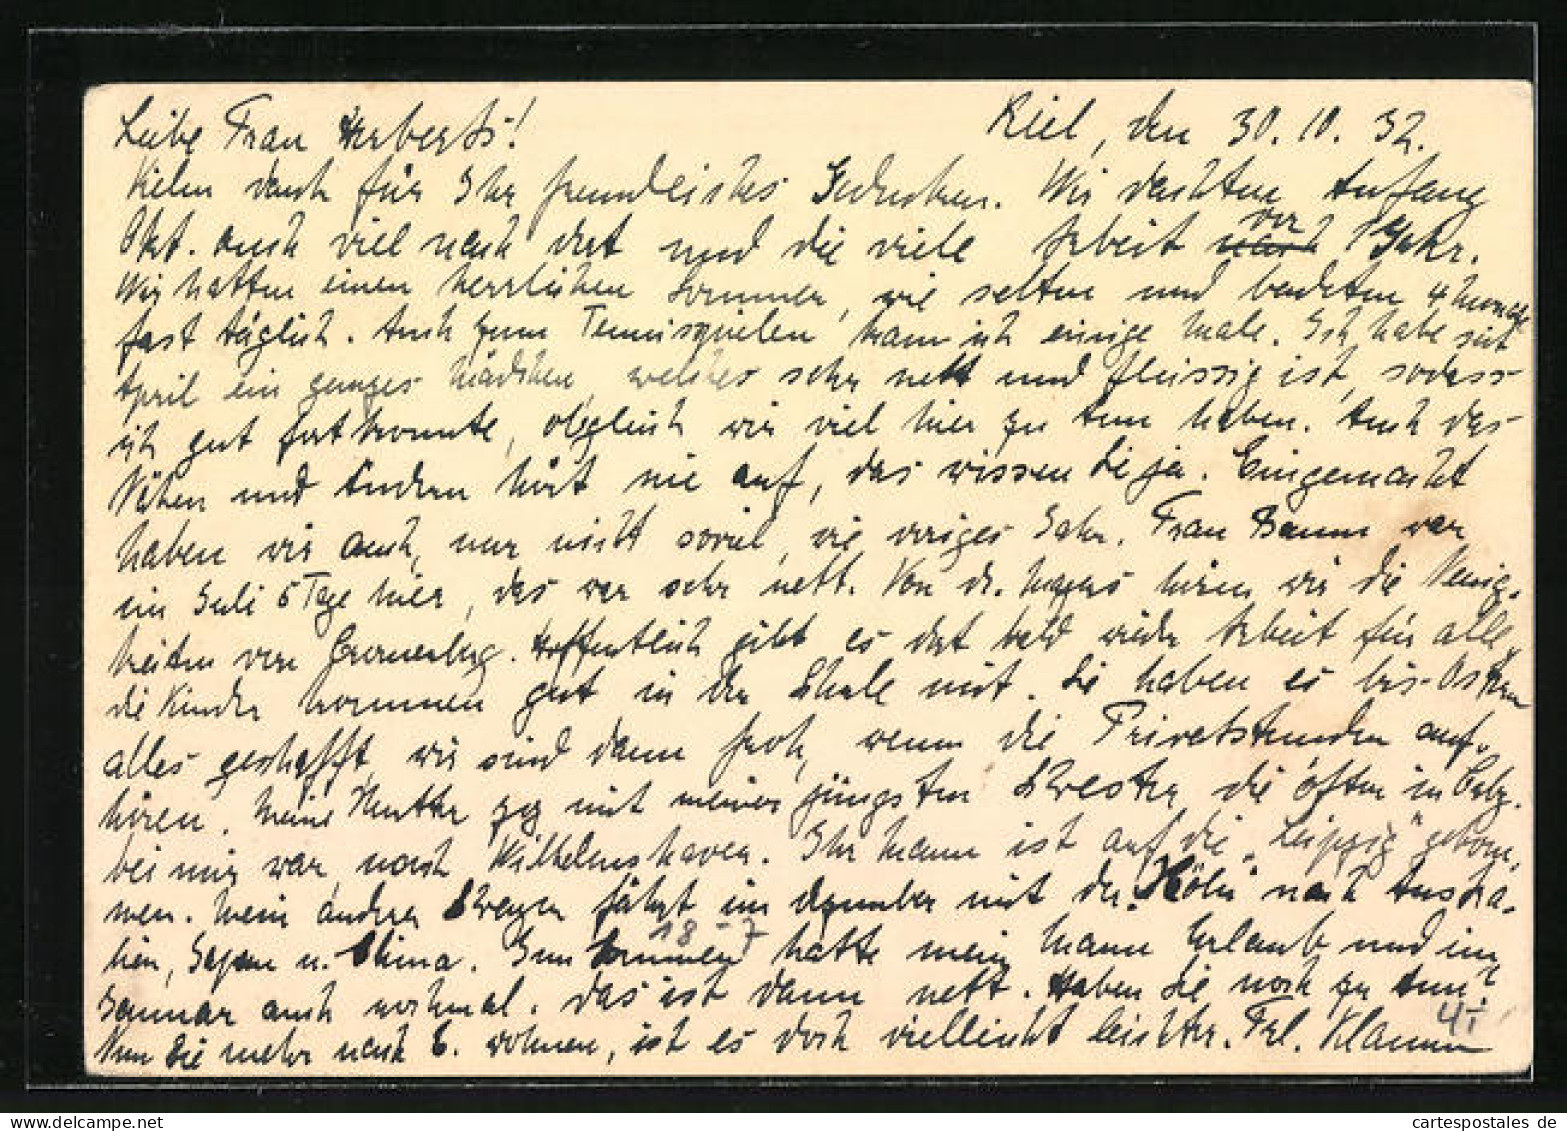 Liebe Frau Herberts! Kiel, den 30. 10. 32.
Vielen Dank für Ihr freundliches Gedenken. Wir dachten Anfang
Okt. auch viel nach dort und die viele Arbeit vor 1 Jahr.
Wir hatten einen herrlichen Sommer, wie selten und badeten 4 Monate
fast täglich. Auch zum Tennisspielen kam ich einige Male. Ich habe seit
April ein junges Mädchen, welches sehr nett und fleissig ist, sodass
ich gut fort konnte, obgleich wir viel hier zu tun haben. Auch das
Nähen und Ändern hört nie auf, das wissen Sie ja. Eingemacht
haben wir auch, nur nicht soviel, wie voriges Jahr. Frau Baum war
im Juli 5 Tage hier, das war sehr nett. Von Dr. hören wir die Neuig-
keiten von Cronenberg. Hoffentlich gibt es dort bald wieder Arbeit für alle,
die Kinder kommen gut in der Schule mit. Sie haben es bis Ostern
alles geschafft, wir sind dann froh, wenn die Privatstunden auf-
hören. Meine Mutter zog mit meiner jüngsten Schwester, die öfter in
bei mir war, nach Wilhelmshaven. Ihr Mann ist auf die „Leipzig“ gekom-
men. Mein anderer Schwager fährt im Dezember mit der „Köln“ nach Austra-
lien, Japan u. China. Im Sommer hatte mein Mann Urlaub und im
18 - 7
Januar auch nochmal. Das ist dann nett. Haben Sie noch zu tun?
Nun Sie mehr nach E. wohnen, ist es doch vielleicht leichter. Frl. Klamm
4,-
cartespostales de
www.delcampe.net